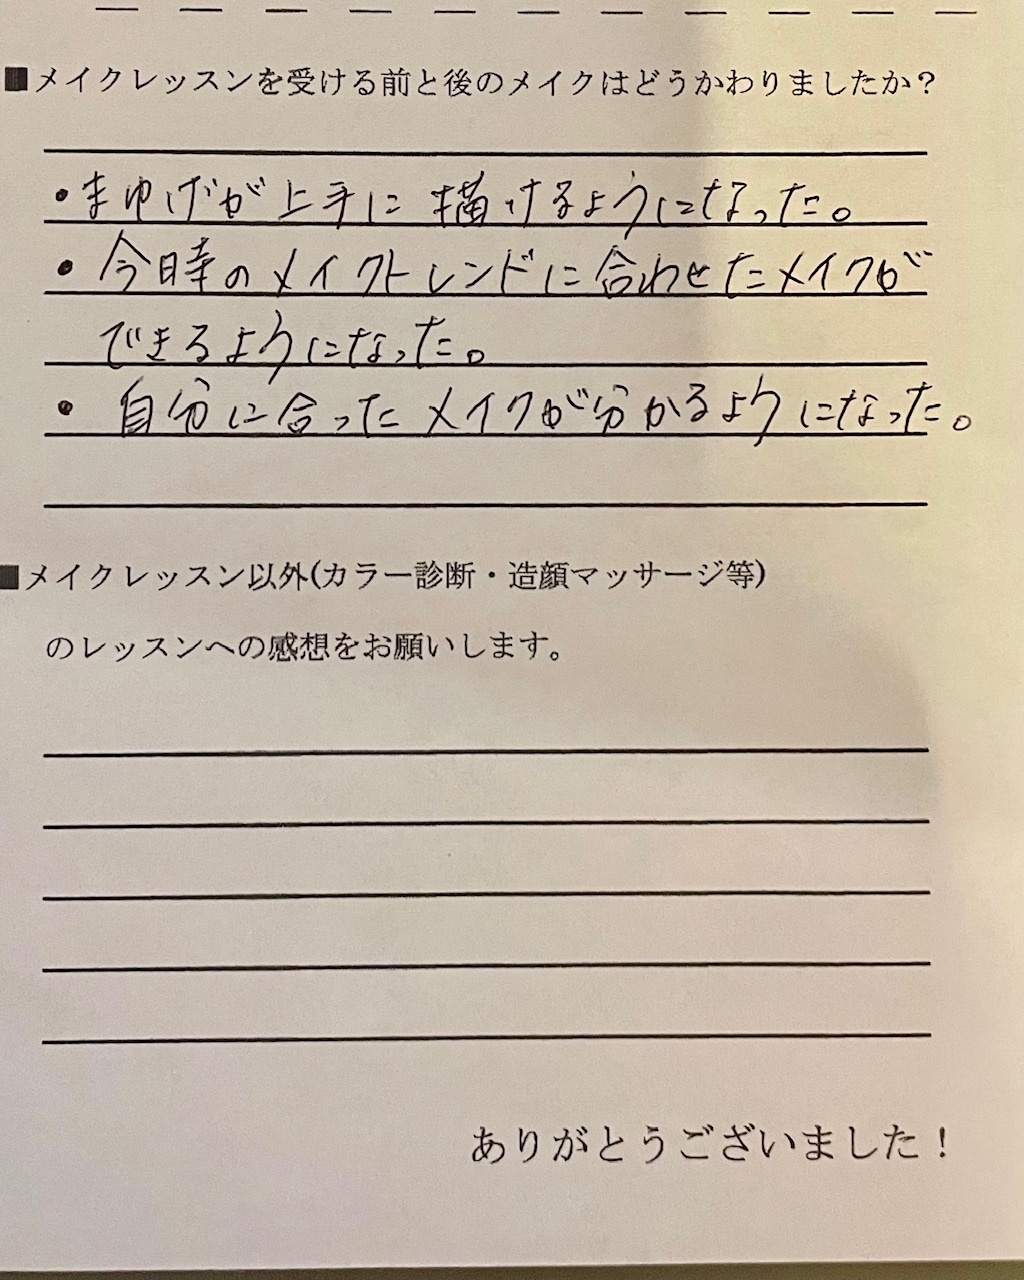 ■メイクレッスンを受ける前と後のメイクはどうかわりましたか？
・まゆげが上手に描けるようになった。
・今時のメイクトレンドに合わせたメイクが
できるようになった。
・自分に合ったメイクが分かるようになった。
■メイクレッスン以外(カラー診断・造顔マッサージ等)
のレッスンへの感想をお願いします。
ありがとうございました！